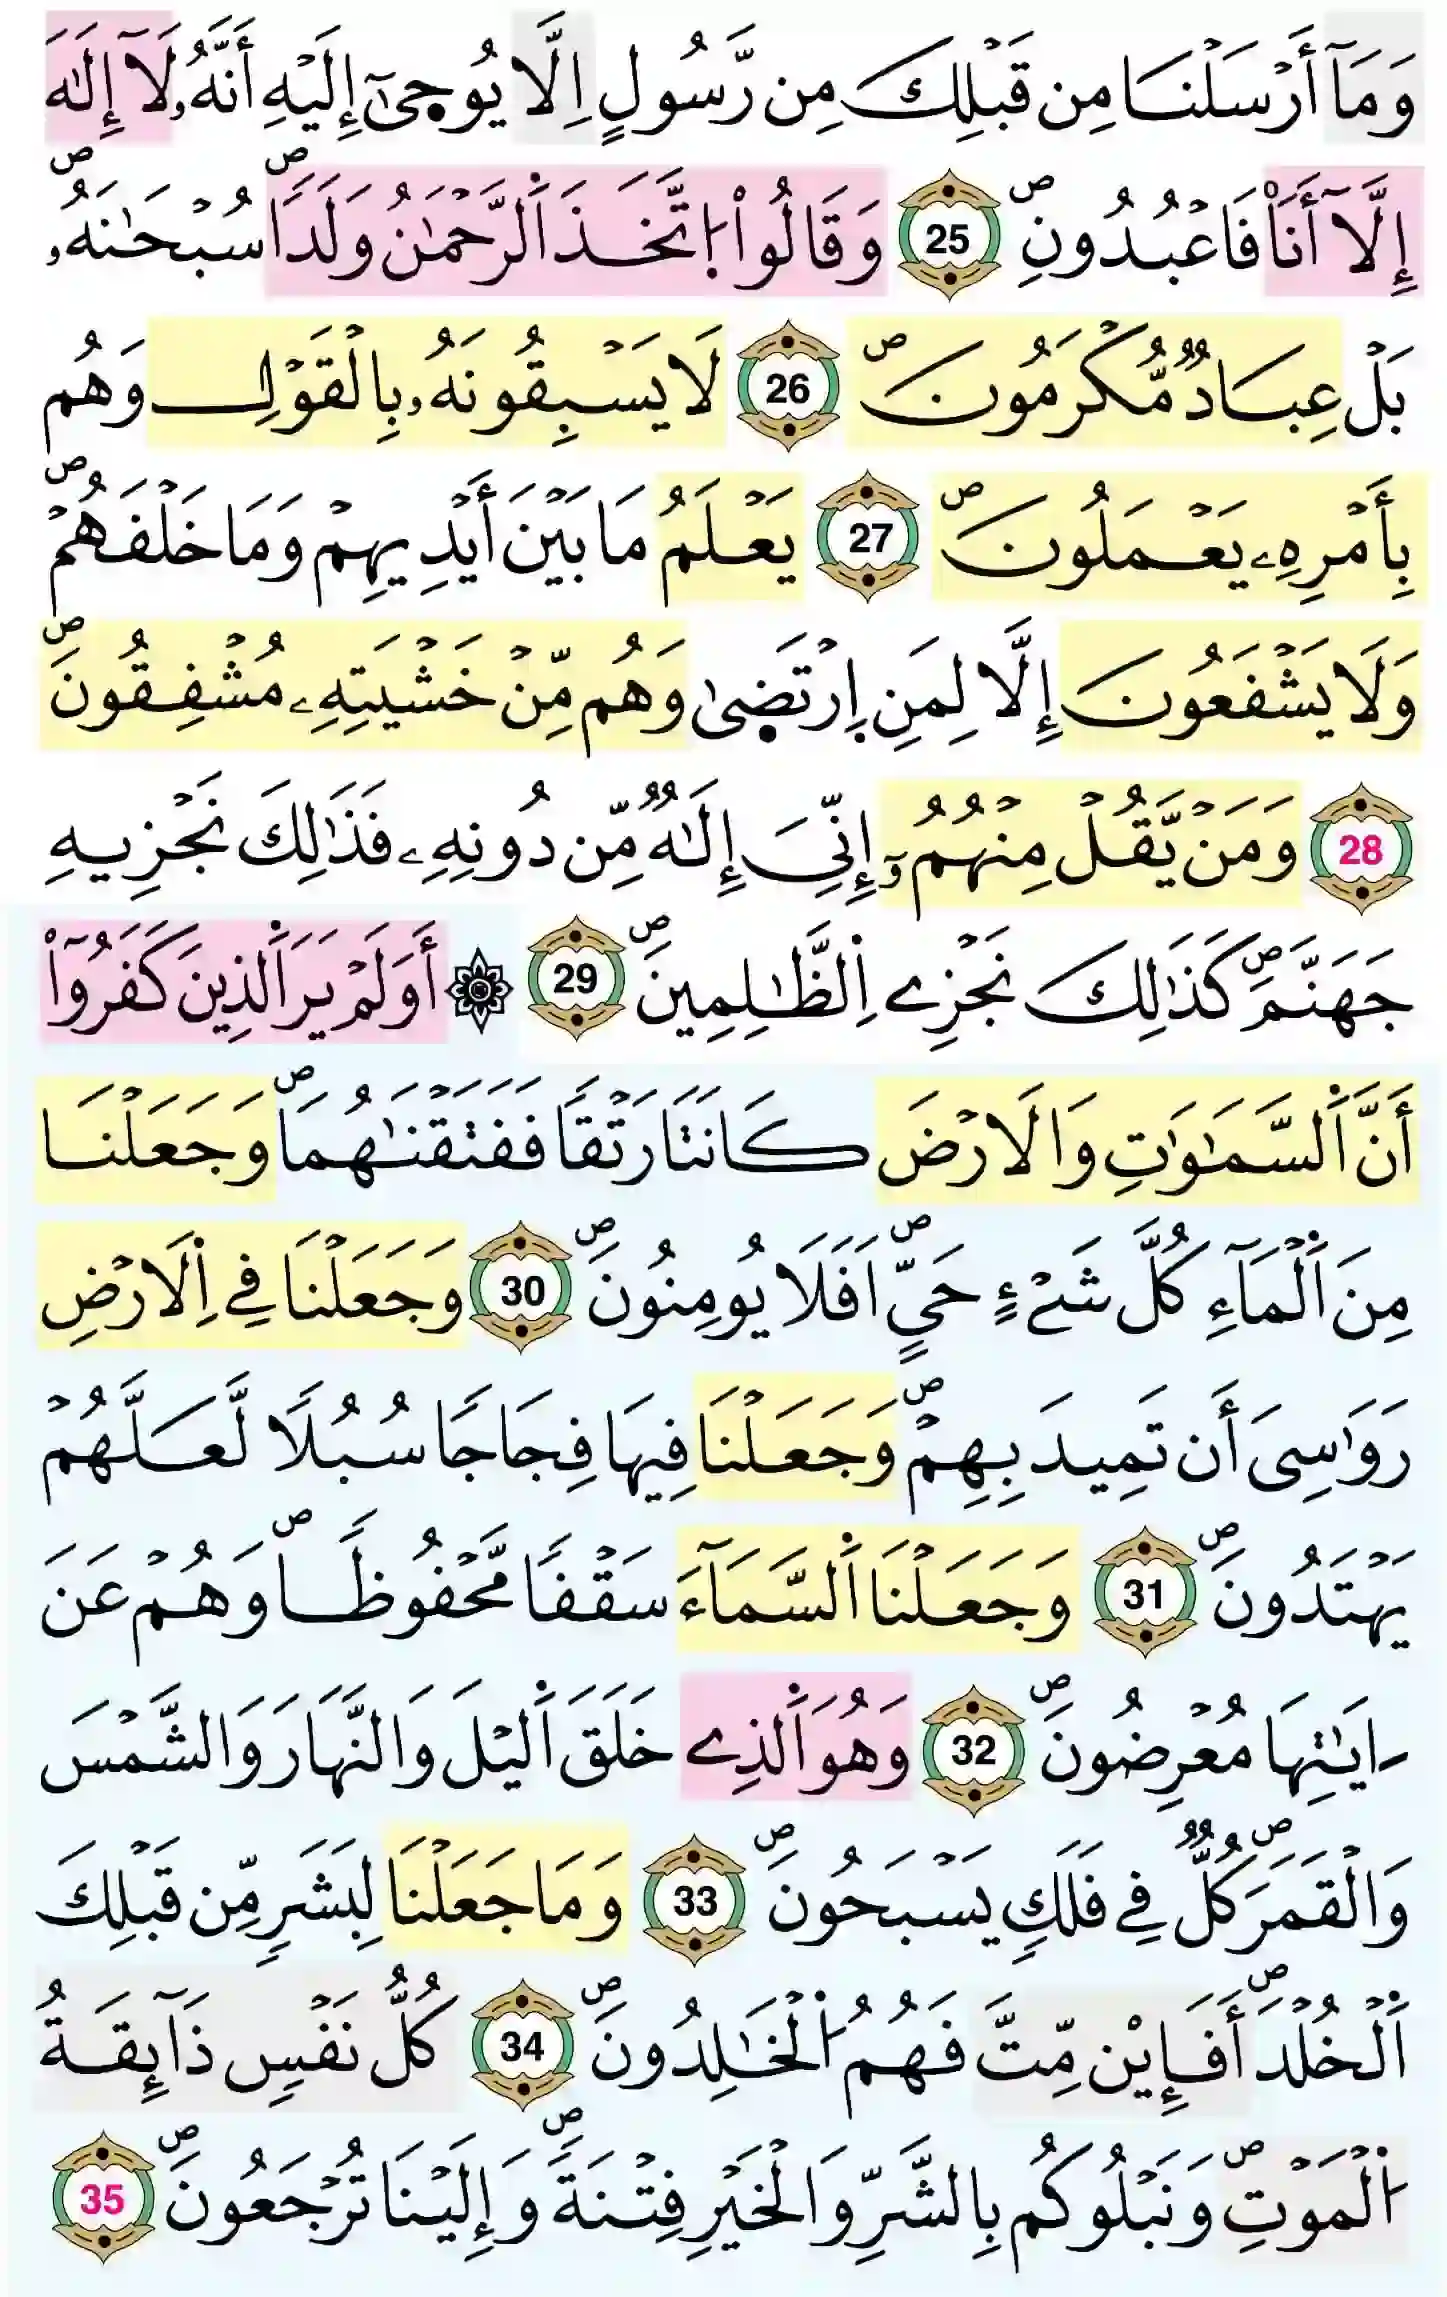 وَمَآ أَرْسَلْنَا مِن قَبْلِكَ مِن رَّسُولٍ اِلَّا يُوحَىٰٓ إِلَيْهِ أَنَّهُۥ لَآ إِلَٰهَ
إِلَّآ أَنَا۠ فَاعْبُدُونِۖ 25 وَقَالُوا۟ اُ۪تَّخَذَ اَ۬لرَّحْمَٰنُ وَلَداٗۖ سُبْحَٰنَهُۥۖ
بَلْ عِبَادٞ مُّكْرَمُونَۖ 26 لَا يَسْبِقُونَهُۥ بِالْقَوْلِ وَهُم
بِأَمْرِهِۦ يَعْمَلُونَۖ 27 يَعْلَمُ مَا بَيْنَ أَيْدِيهِمْ وَمَا خَلْفَهُمْۖ
وَلَا يَشْفَعُونَ إِلَّا لِمَنِ اِ۪رْتَضَىٰ وَهُم مِّنْ خَشْيَتِهِۦ مُشْفِقُونَۖ
28 وَمَنْ يَّقُلْ مِنْهُمُۥٓ إِنِّيَ إِلَٰهٞ مِّن دُونِهِۦ فَذَٰلِكَ نَجْزِيهِ
جَهَنَّمَۖ كَذَٰلِكَ نَجْزِے اِ۬لظَّٰلِمِينَۖ 29 ۞ أَوَلَمْ يَرَ اَ۬لذِينَ كَفَرُوٓا۟
أَنَّ اَ۬لسَّمَٰوَٰتِ وَالَارْضَ كَانَتَا رَتْقاٗ فَفَتَقْنَٰهُمَاۖ وَجَعَلْنَا
مِنَ اَ۬لْمَآءِ كُلَّ شَےْءٍ حَيٍّۖ اَفَلَا يُومِنُونَۖ 30 وَجَعَلْنَا فِے اِ۬لَارْضِ
رَوَٰسِىَ أَن تَمِيدَ بِهِمْۖ وَجَعَلْنَا فِيهَا فِجَاجاٗ سُبُلاٗ لَّعَلَّهُمْ
يَهْتَدُونَۖ 31 وَجَعَلْنَا اَ۬لسَّمَآءَ سَقْفاٗ مَّحْفُوظاٗۖ وَهُمْ عَنَ
ـايَٰتِهَا مُعْرِضُونَۖ 32 وَهُوَ اَ۬لذِے خَلَقَ اَ۬ليْلَ وَالنَّهَارَ وَالشَّمْسَ
وَالْقَمَرَۖ كُلّٞ فِے فَلَكٍ يَسْبَحُونَۖ 33 وَمَا جَعَلْنَا لِبَشَرٍ مِّن قَبْلِكَ
اَ۬لْخُلْدَۖ أَفَإِيْن مِّتَّ فَهُمُ اُ۬لْخَٰلِدُونَۖ 34 كُلُّ نَفْسٍ ذَآئِقَةُ
اُ۬لْمَوْتِۖ وَنَبْلُوكُم بِالشَّرِّ وَالْخَيْرِ فِتْنَةٗۖ وَإِلَيْنَا تُرْجَعُونَۖ 35